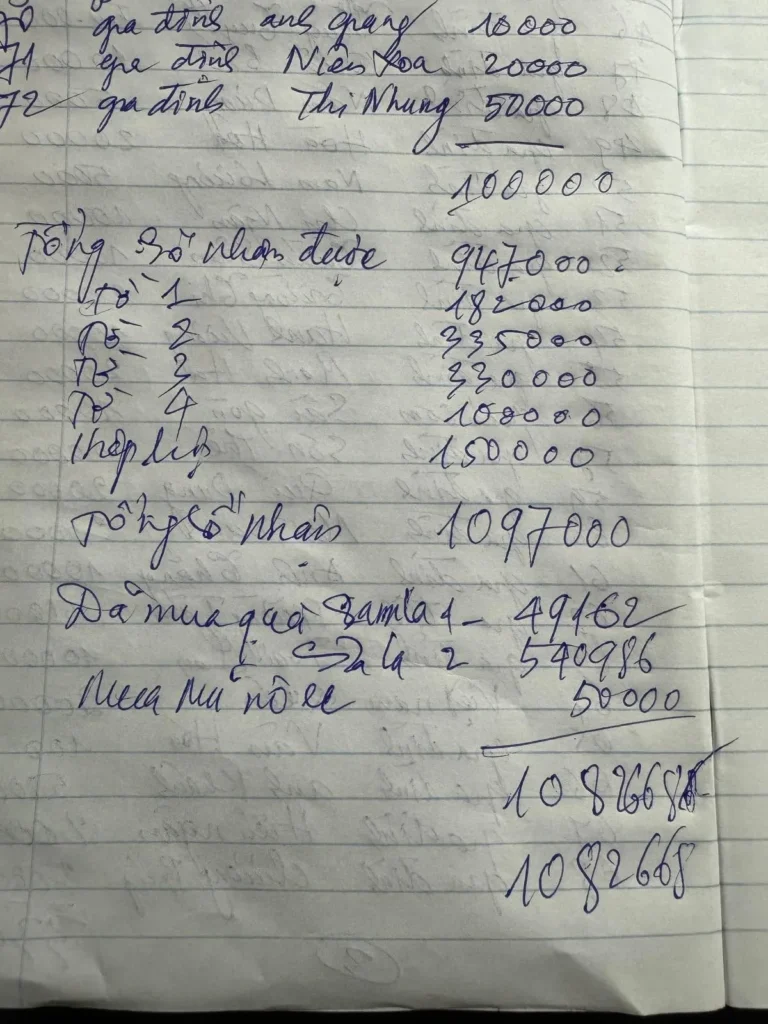 70 gia đình anh giang 10000
71 gia đình Niên Xoa 20000
72 gia đình Thi Nhung 50000
100000
Tổng Số nhận được 947.000
Tổ 1 182000
Tổ 2 335000
Tổ 3 330000
Tổ 4 100000
150000
Tổng Số nhận 1097000
Đã mua quà lần 1 - 49162
lần 2 540986
Mua 50000
1082668
1082668